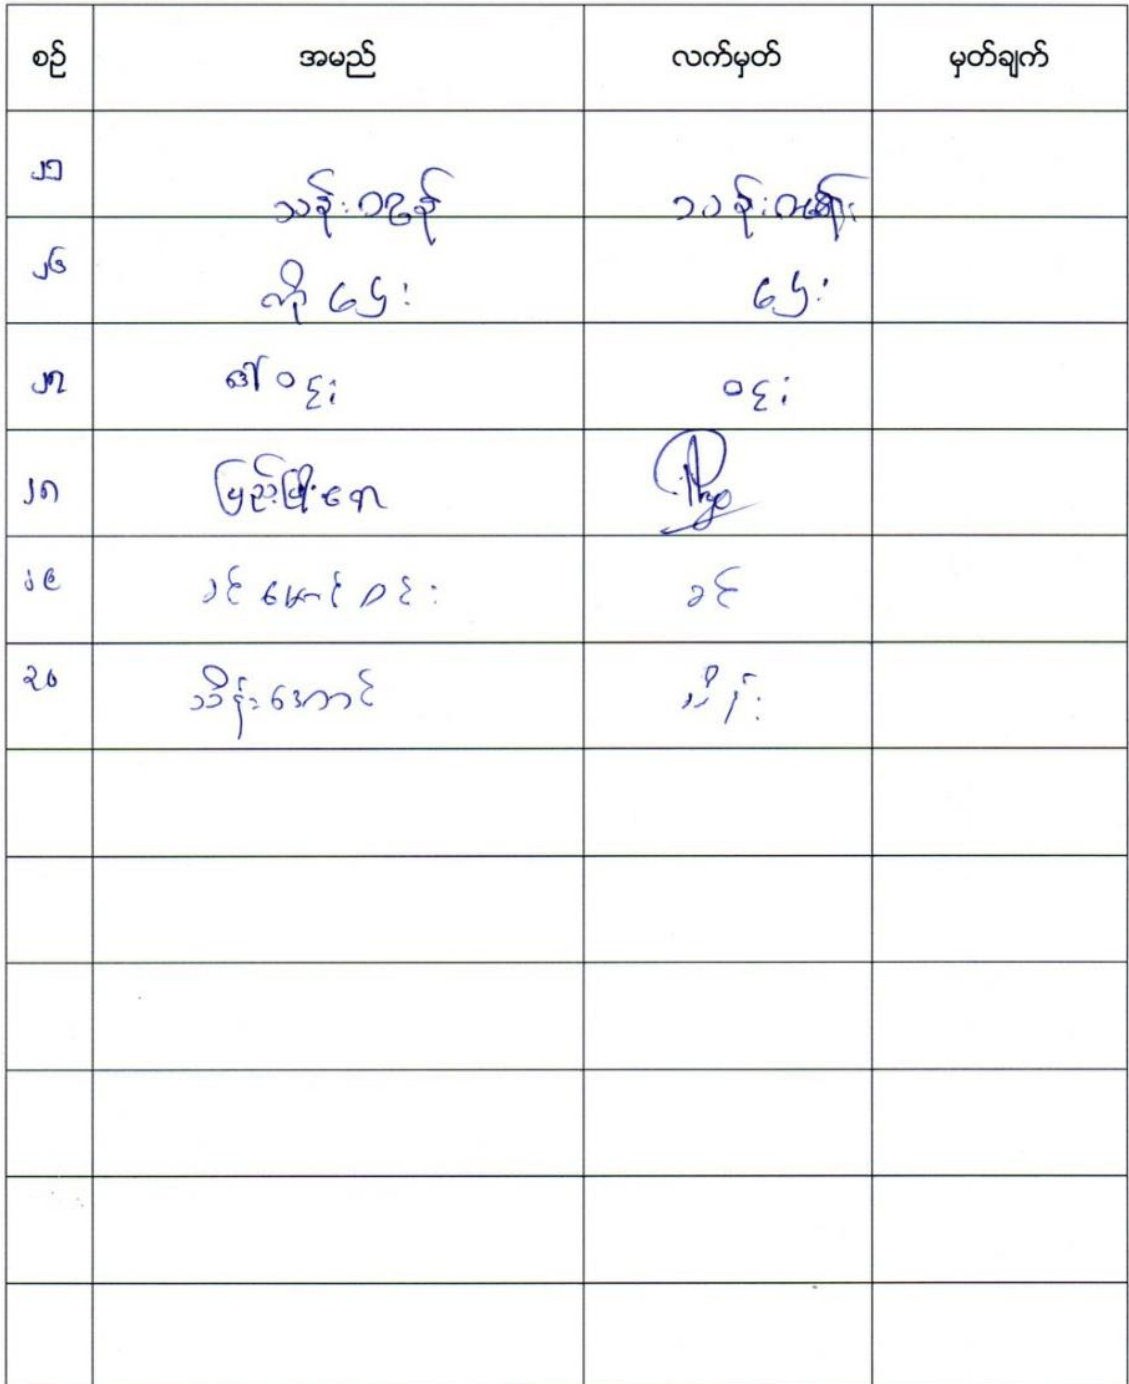 စဉ် အမည် လက်မှတ် မှတ်ချက်
၂၅ သန်းဂဠုန် သန်း
၂၆ ကို ဌေး ဌေး
၂၇ ဒေါ်ဝင်း ဝင်း
၂၈ ပြည့်ဖြိုးဇော
၂၉ ခင်မောင်ဝင်း ခင်
၃၀ သိန်းအောင် သိန်း